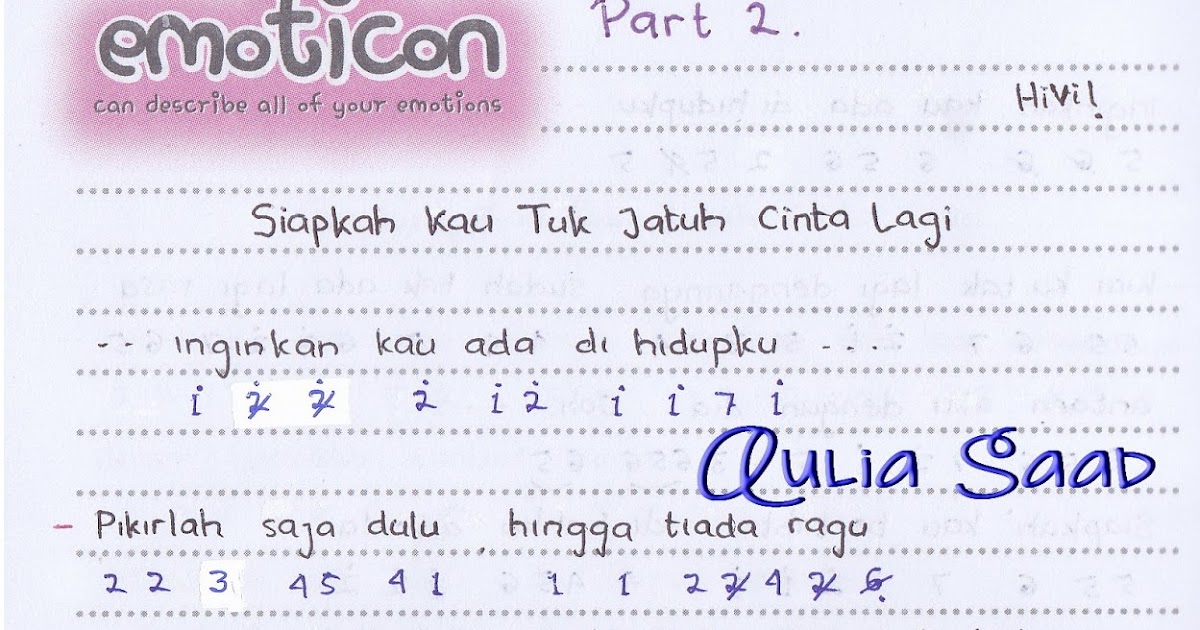 emoticon
can describe all of your emotions
Part 2.
HiVi!
Siapkah Kau Tuk Jatuh Cinta Lagi
-- inginkan kau ada di hidupku ....
i̇ 2̸̇ 2̸̇ 2̇ i̇ 2̇ i̇ i̇ 7 i̇
Aulia Saad
- Pikirlah saja dulu, hingga tiada ragu
2 2 3 4 5 4 1 1 1 2 2̸ 4 2̸ 6̸̣